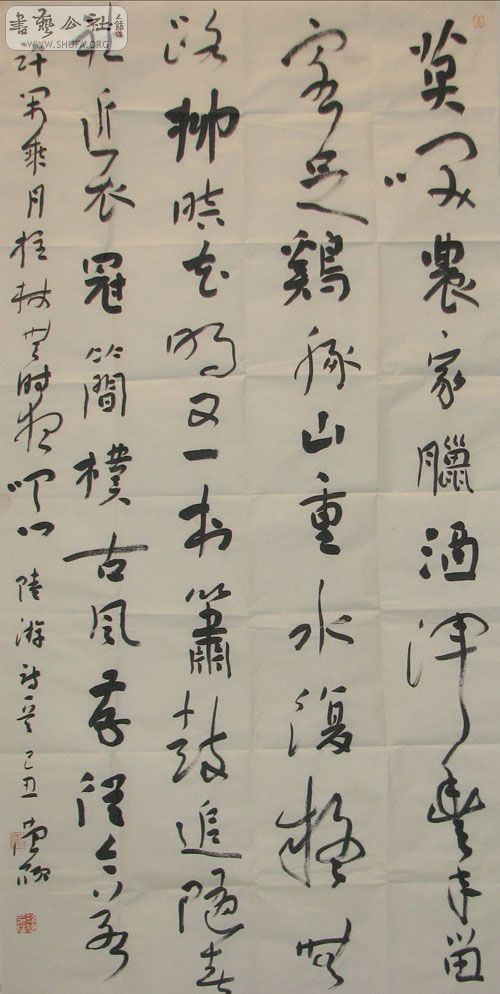 書藝公社
WWW.SHUFA.ORG
莫笑農家臘酒渾豐年留
客足鷄豚山重水復疑無
路柳暗花明又一村簫鼓追隨春
社近衣冠簡樸古風存從今若
許閑乘月拄杖無時夜叩門 陸游詩一首 己丑